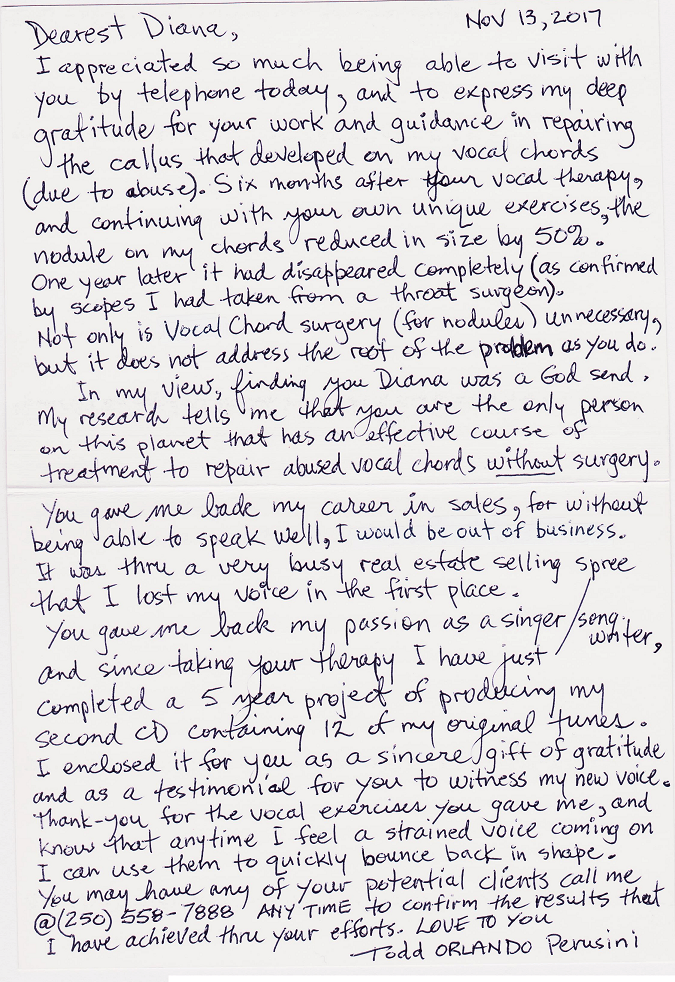 Nov 13, 2017
Dearest Diana,
I appreciated so much being able to visit with
you by telephone today, and to express my deep
gratitude for your work and guidance in repairing
the callus that developed on my vocal chords
(due to abuse). Six months after your vocal therapy,
and continuing with your own unique exercises, the
nodule on my chords reduced in size by 50%.
One year later it had disappeared completely (as confirmed
by scopes I had taken from a throat surgeon).
Not only is Vocal Chord surgery (for nodules) unnecessary,
but it does not address the root of the problem as you do.
In my view, finding you Diana was a God send.
My research tells me that you are the only person
on this planet that has an effective course of
treatment to repair abused vocal chords without surgery.
You gave me back my career in sales, for without
being able to speak well, I would be out of business.
It was thru a very busy real estate selling spree
that I lost my voice in the first place.
You gave me back my passion as a singer/song-
writer,
and since taking your therapy I have just
completed a 5 year project of producing my
second CD containing 12 of my original tunes.
I enclosed it for you as a sincere gift of gratitude
and as a testimonial for you to witness my new voice.
Thank-you for the vocal exercises you gave me, and
know that anytime I feel a strained voice coming on
I can use them to quickly bounce back in shape.
You may have any of your potential clients call me
@(250) 558-7888 ANY TIME to confirm the results that
I have achieved thru your efforts. LOVE TO YOU
Todd ORLANDO Perusini